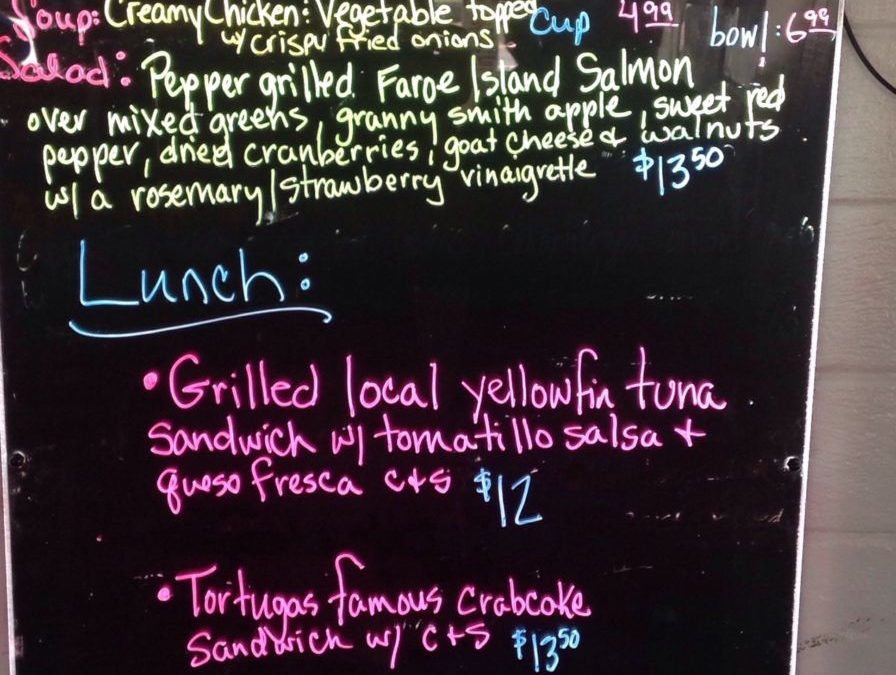 Soup: Creamy Chicken: Vegetable topped cup 4.99 bowl: 6.99
w/ crispy fried onions
Salad: Pepper grilled Faroe Island Salmon
over mixed greens, granny smith apple, sweet red
pepper, dried cranberries, goat cheese & walnuts
w/ a rosemary/strawberry vinaigrette $13.50
Lunch:
• Grilled local yellowfin tuna
sandwich w/ tomatillo salsa +
queso fresca c+s $12
• Tortugas famous crabcake
sandwich w/ c+s $13.50